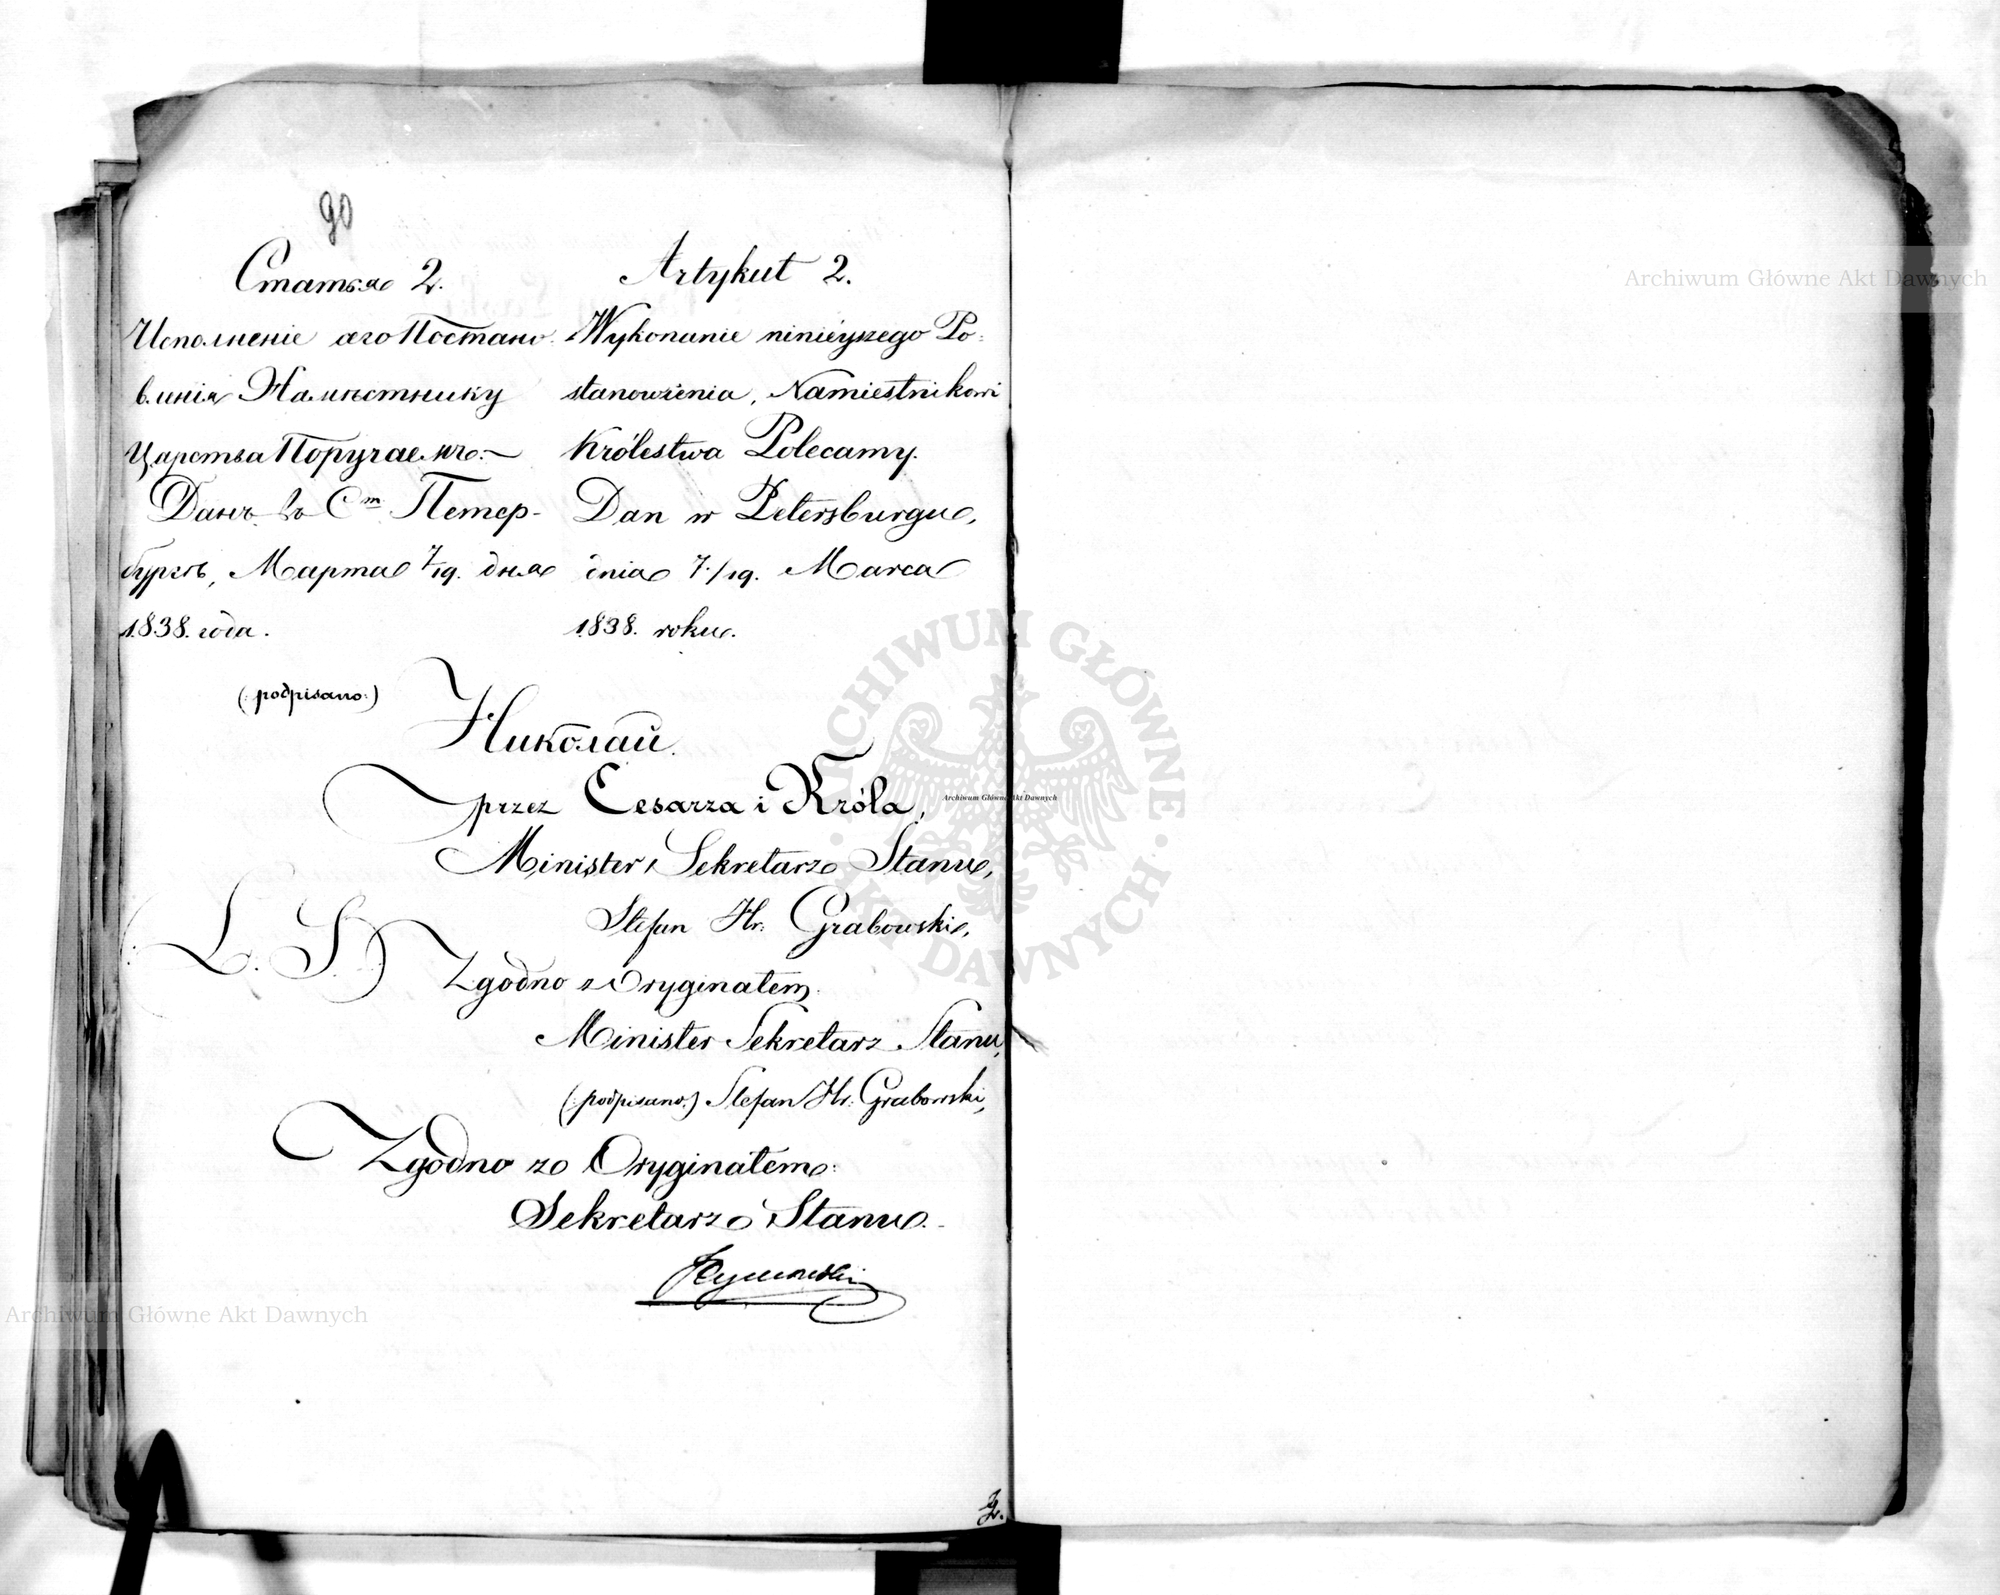 90
Статья 2.
Исполненіе сего Постано-
вленія Намѣстнику
Царства Поручаемъ.
Данъ въ С.т Петер-
бургѣ, Марта 7/19. дня
1838. года.
Artykuł 2.
Wykonanie ninieyszego Po-
stanowienia, Namiestnikowi
Królestwa Polecamy.
Dan w Petersburgu,
dnia 7./19. Marca
1838. roku.
(:podpisano:)
Николай.
przez Cesarza i Króla,
Minister, Sekretarz Stanu,
Stefan Hr. Grabowski,
(:L. S.:)
Zgodno z Oryginałem
Minister Sekretarz Stanu,
(:podpisano:) Stefan Hr. Grabowski,
Zgodno z Oryginałem:
Sekretarz Stanu.
Archiwum Główne Akt Dawnych
Archiwum Główne Akt Dawnych
Archiwum Główne Akt Dawnych
ARCHIWUM GŁÓWNE AKT DAWNYCH